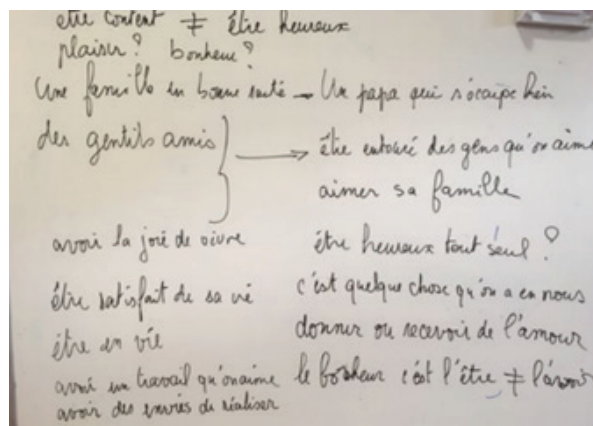 être content ≠ être heureux
plaisir ? bonheur ?
Une famille en bonne santé — Un papa qui s'occupe bien
des gentils amis → être entouré des gens qu'on aime
aimer sa famille
avoir la joie de vivre être heureux tout seul ?
être satisfait de sa vie c'est quelque chose qu'on a en nous
être en vie donner ou recevoir de l'amour
avoir un travail qu'on aime le bonheur c'est l'être ≠ l'avoir
avoir des envies de réaliser